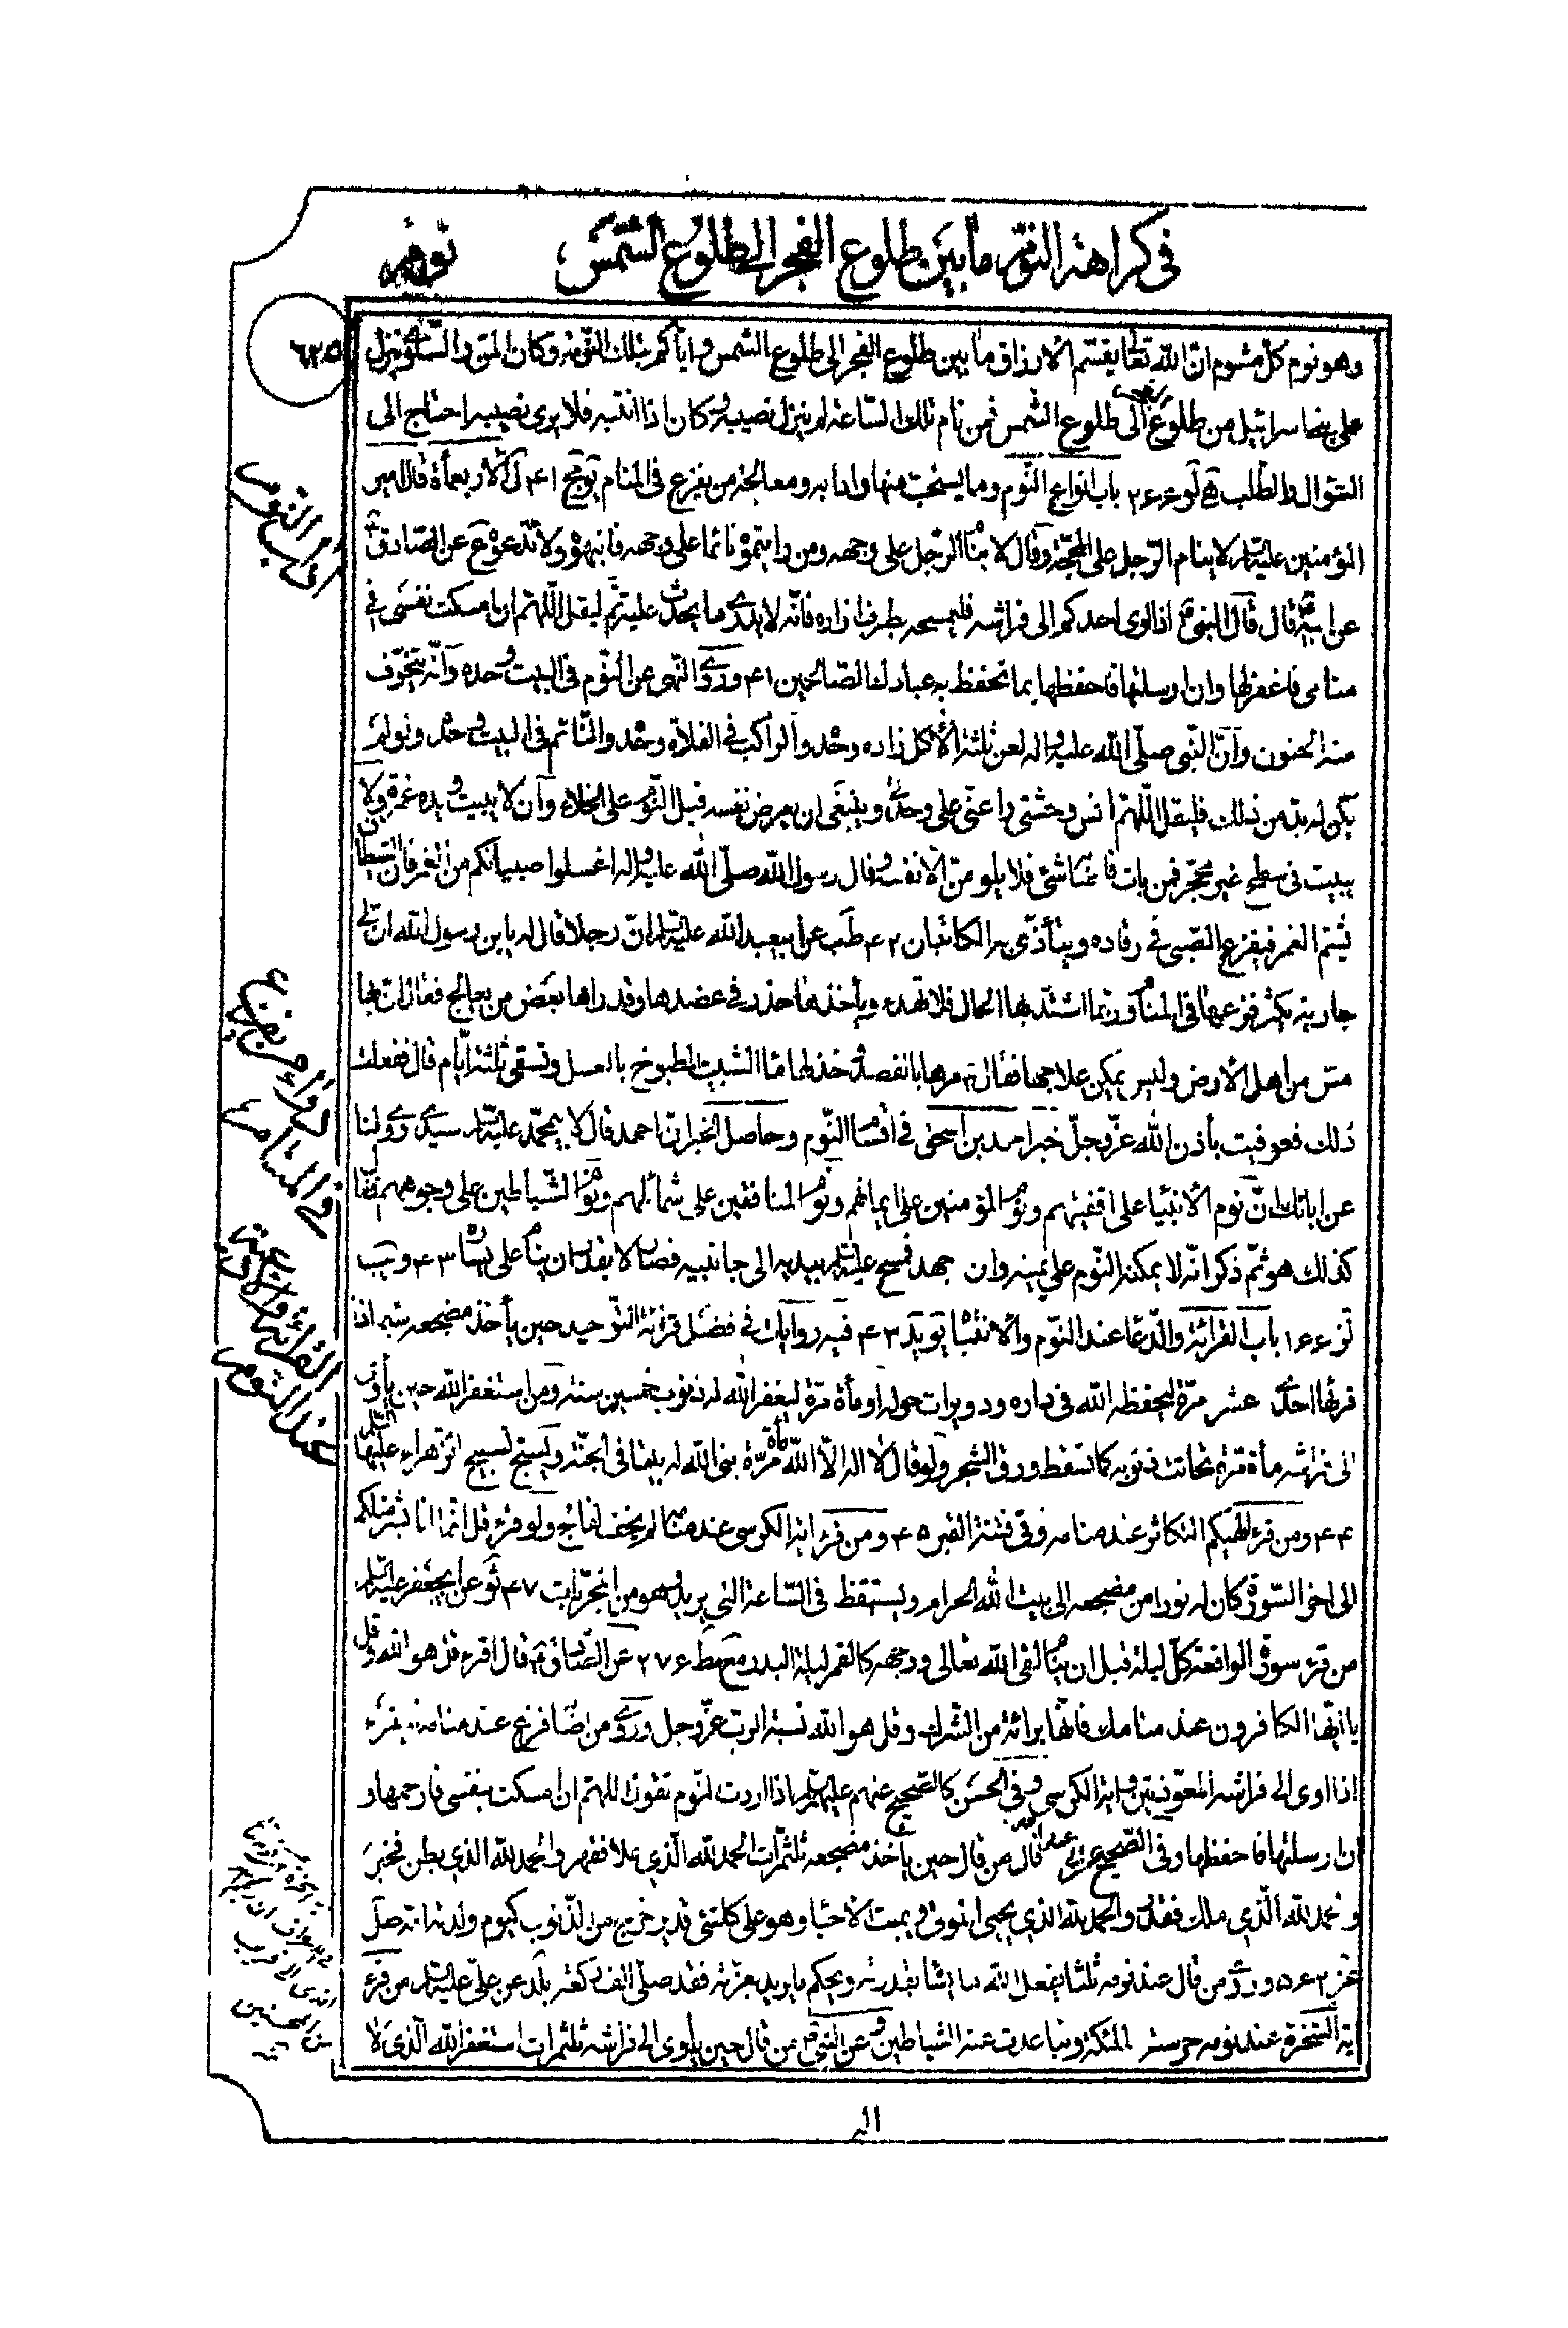 في كراهة النوم ما بين طلوع الفجر الى طلوع الشمس
نوم
٦٢٥
وهو نوم كل مشوم ان الله تعالى يقسم الأرزاق ما بين طلوع الفجر الى طلوع الشمس واياكم وتلك النومة وكان المن والسلوى ينزل
على بني اسرائيل من طلوع الفجر الى طلوع الشمس فمن نام تلك الساعة لم ينزل نصيبه وكان اذا انتبه فلا يرى نصيبه احتاج الى
السؤال والطلب باب انواع النوم وما يستحب منها وادابه ومعالجة من يفزع في المنام ٤١ الأربعمأة قال امير
المؤمنين عليه السلام لا ينام الرجل على المحجة وقال لا ينام الرجل على وجهه ومن رايتموه نائما على وجهه فانبهوه ولا تدعوه ع عن الصادق
عن ابيه قال قال النبي اذا اوى احدكم الى فراشه فليمسحه بطرف ازاره فانه لا يدري ما يحدث عليه ثم ليقل اللهم ان امسكت نفسي في
منامي فاغفر لها وان ارسلتها فاحفظها بما تحفظ به عبادك الصالحين ٤١ وروي النهي عن النوم في البيت وحده وانه يتخوف
منه الجنون وان النبي صلى الله عليه واله لعن ثلثة الأكل زاده وحده والراكب في الفلاة وحده والنائم في البيت وحده ولو لم
يكن له بد من ذلك فليقل اللهم انس وحشتي واعني على وحدتي وينبغي ان يعرض نفسه قبل النوم على الخلاء وان لا يبيت ويده غمرة ولا
يبيت في سطح غير محجر فمن بات فاصابه شئ فلا يلومن الا نفسه وقال رسول الله صلى الله عليه واله اغسلوا صبيانكم من الغمر فان الشيطان
يشم الغمر فيفزع الصبي في رقاده ويتأذى به الكاتبان ٤٢ طب عن ابيعبد الله عليه السلام ان رجلا قال له يابن رسول الله ان لي
جارية يكثر فزعها في المنام وربما اشتد بها الحال فلا تهدء ويأخذها خدر في عضدها وقد راها بعض من يعالج فقال ان بها
مس من اهل الأرض وليس يمكن علاجها فقال مرها بالفصد وخذ لها ماء الشبت المطبوخ بالعسل وتسقى ثلثة ايام قال ففعلت
ذلك فعوفيت بأذن الله عز وجل خبر احمد بن اسحق في اقسام النوم وحاصل الخبر ان احمد قال لابيمحمد عليه السلام سيدي روي لنا
عن ابائك ان نوم الأنبياء على اقفيتهم ونوم المؤمنين على ايمانهم ونوم المنافقين على شمائلهم ونوم الشياطين على وجوههم فقال
كذلك هو ثم ذكر انه لا يمكنه النوم على يمينه وان جهد فمسح عليه السلام بيديه الى جانبيه فصار لا يقدر ان ينام على يساره ٤٣
باب القرائة والدعاء عند النوم والانتباه ٤٣ فيه روايات في فضل قرائة التوحيد حين يأخذ مضجعه اذا
قرئها احدى عشر مرة ليحفظه الله في داره ودويرات حوله او مأة مرة ليغفر الله له ذنوب خمسين سنة ومن استغفر الله حين يأوى
الى فراشه مأة مرة تحاتت ذنوبه كما تسقط ورق الشجر ولو قال لا اله الا الله مأة مرة بنى الله له بيتا في الجنة ويسبح تسبيح الزهراء عليها السلام
٤٤ ومن قرء الهيكم التكاثر عند منامه وقي فتنة القبر ٤٥ ومن قرء اية الكرسي عند منامه لم يخف الفالج ولو قرء قل انما انا بشر مثلكم
الى اخر السورة كان له نورا من مضجعه الى بيت الله الحرام ويستيقظ في الساعة التي يريد وهو من المجربات ٤٧ ثو عن ابيجعفر عليه السلام
من قرء سورة الواقعة كل ليلة قبل ان ينام لقى الله تعالى ووجهه كالقمر ليلة البدر ٢٧٦ عن الصادق قال اقرء قل هو الله وقل
يا ايها الكافرون عند منامك فانها برائة من الشرك وقل هو الله نسبة الرب عز وجل وروي من اصابه فزع عند منامه يقرء
اذا اوى الى فراشه المعوذتين واية الكرسي وفي الحسن كالصحيح عنهم عليهم السلام اذا اردت النوم تقول اللهم ان امسكت بنفسي فارحمها و
ان ارسلتها فاحفظها وفي الصحيح عن ابي عبد الله قال من قال حين يأخذ مضجعه ثلثمرات الحمد لله الذي علا فقهر والحمد لله الذي بطن فخبر
والحمد لله الذي ملك فقدر والحمد لله الذي يحيى الموتى ويميت الأحياء وهو على كلشئ قدير خرج من الذنوب كيوم ولدته امه
وروي من قال عند نومه ثلثا يفعل الله ما يشاء بقدرته ويحكم ما يريد بعزته فقد صلى الف ركعة بلد عن علي عليه السلام من قرء
اية السخرة عند نومه حرسته الملئكة وتباعدت عنه الشياطين وعن النبي من قال حين يأوى الى فراشه ثلثمرات استغفر الله الذي لا
اله
اداب النوم
دواء من يفزع
في المنام
القرائة والدعاء
عند النوم